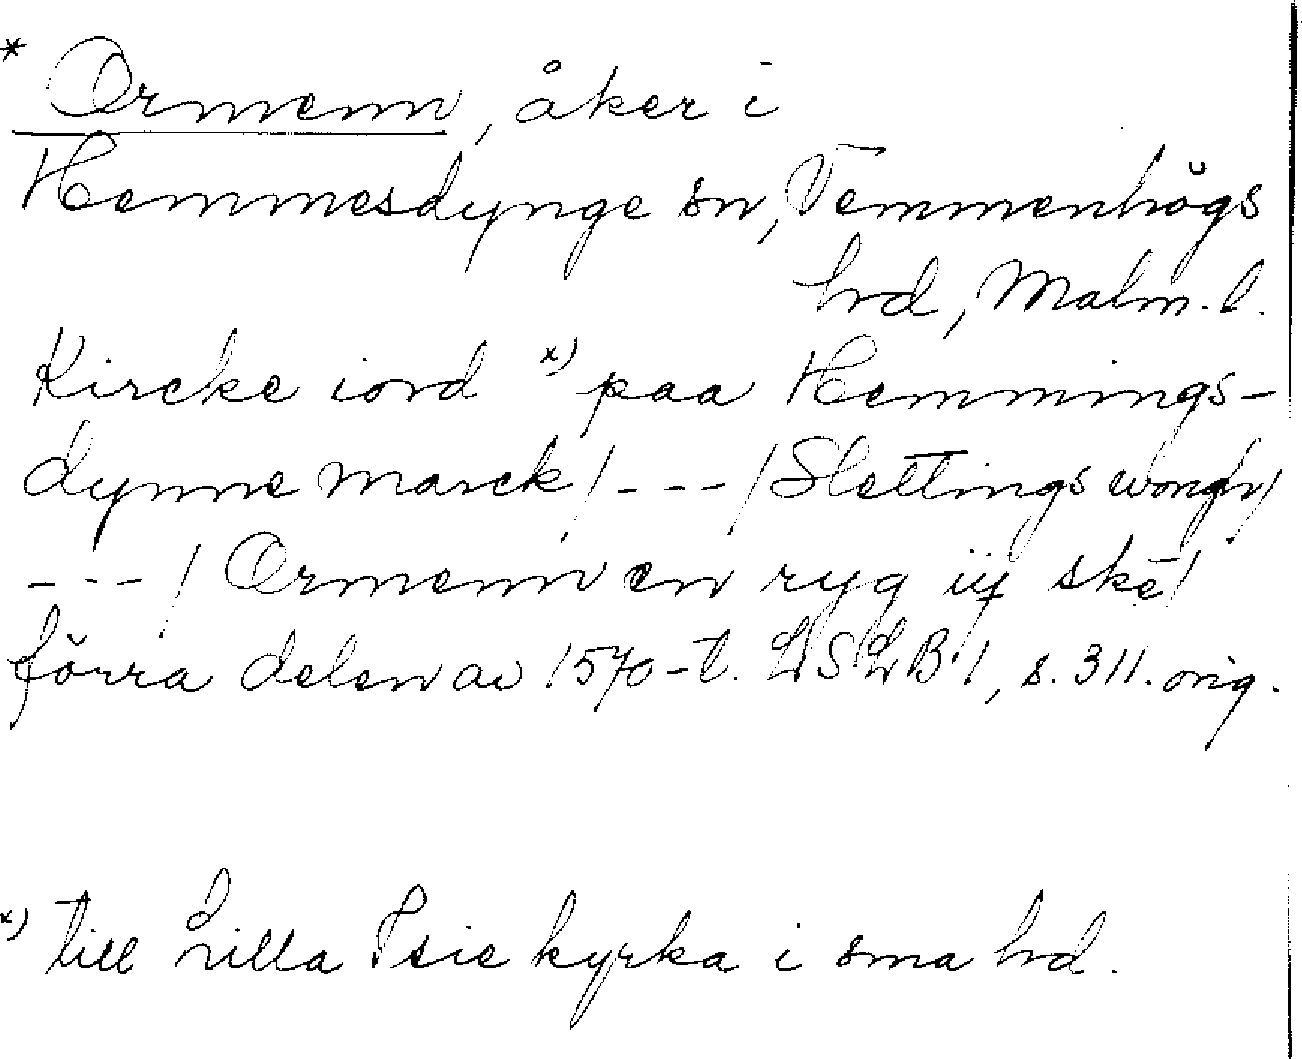 * Ormenn, åker i
Hemmesdynge sn, Vemmenhögs
hrd, Malm. l.
Kircke iord x) paa Hemmings-
dynne marck /---/ Slettings wongh /
---/ Ormenn en ryg iij ske /
förra delen av 1570-t. LSLB 1, s. 311. orig.
x) till Lilla Isie kyrka i sma hrd.